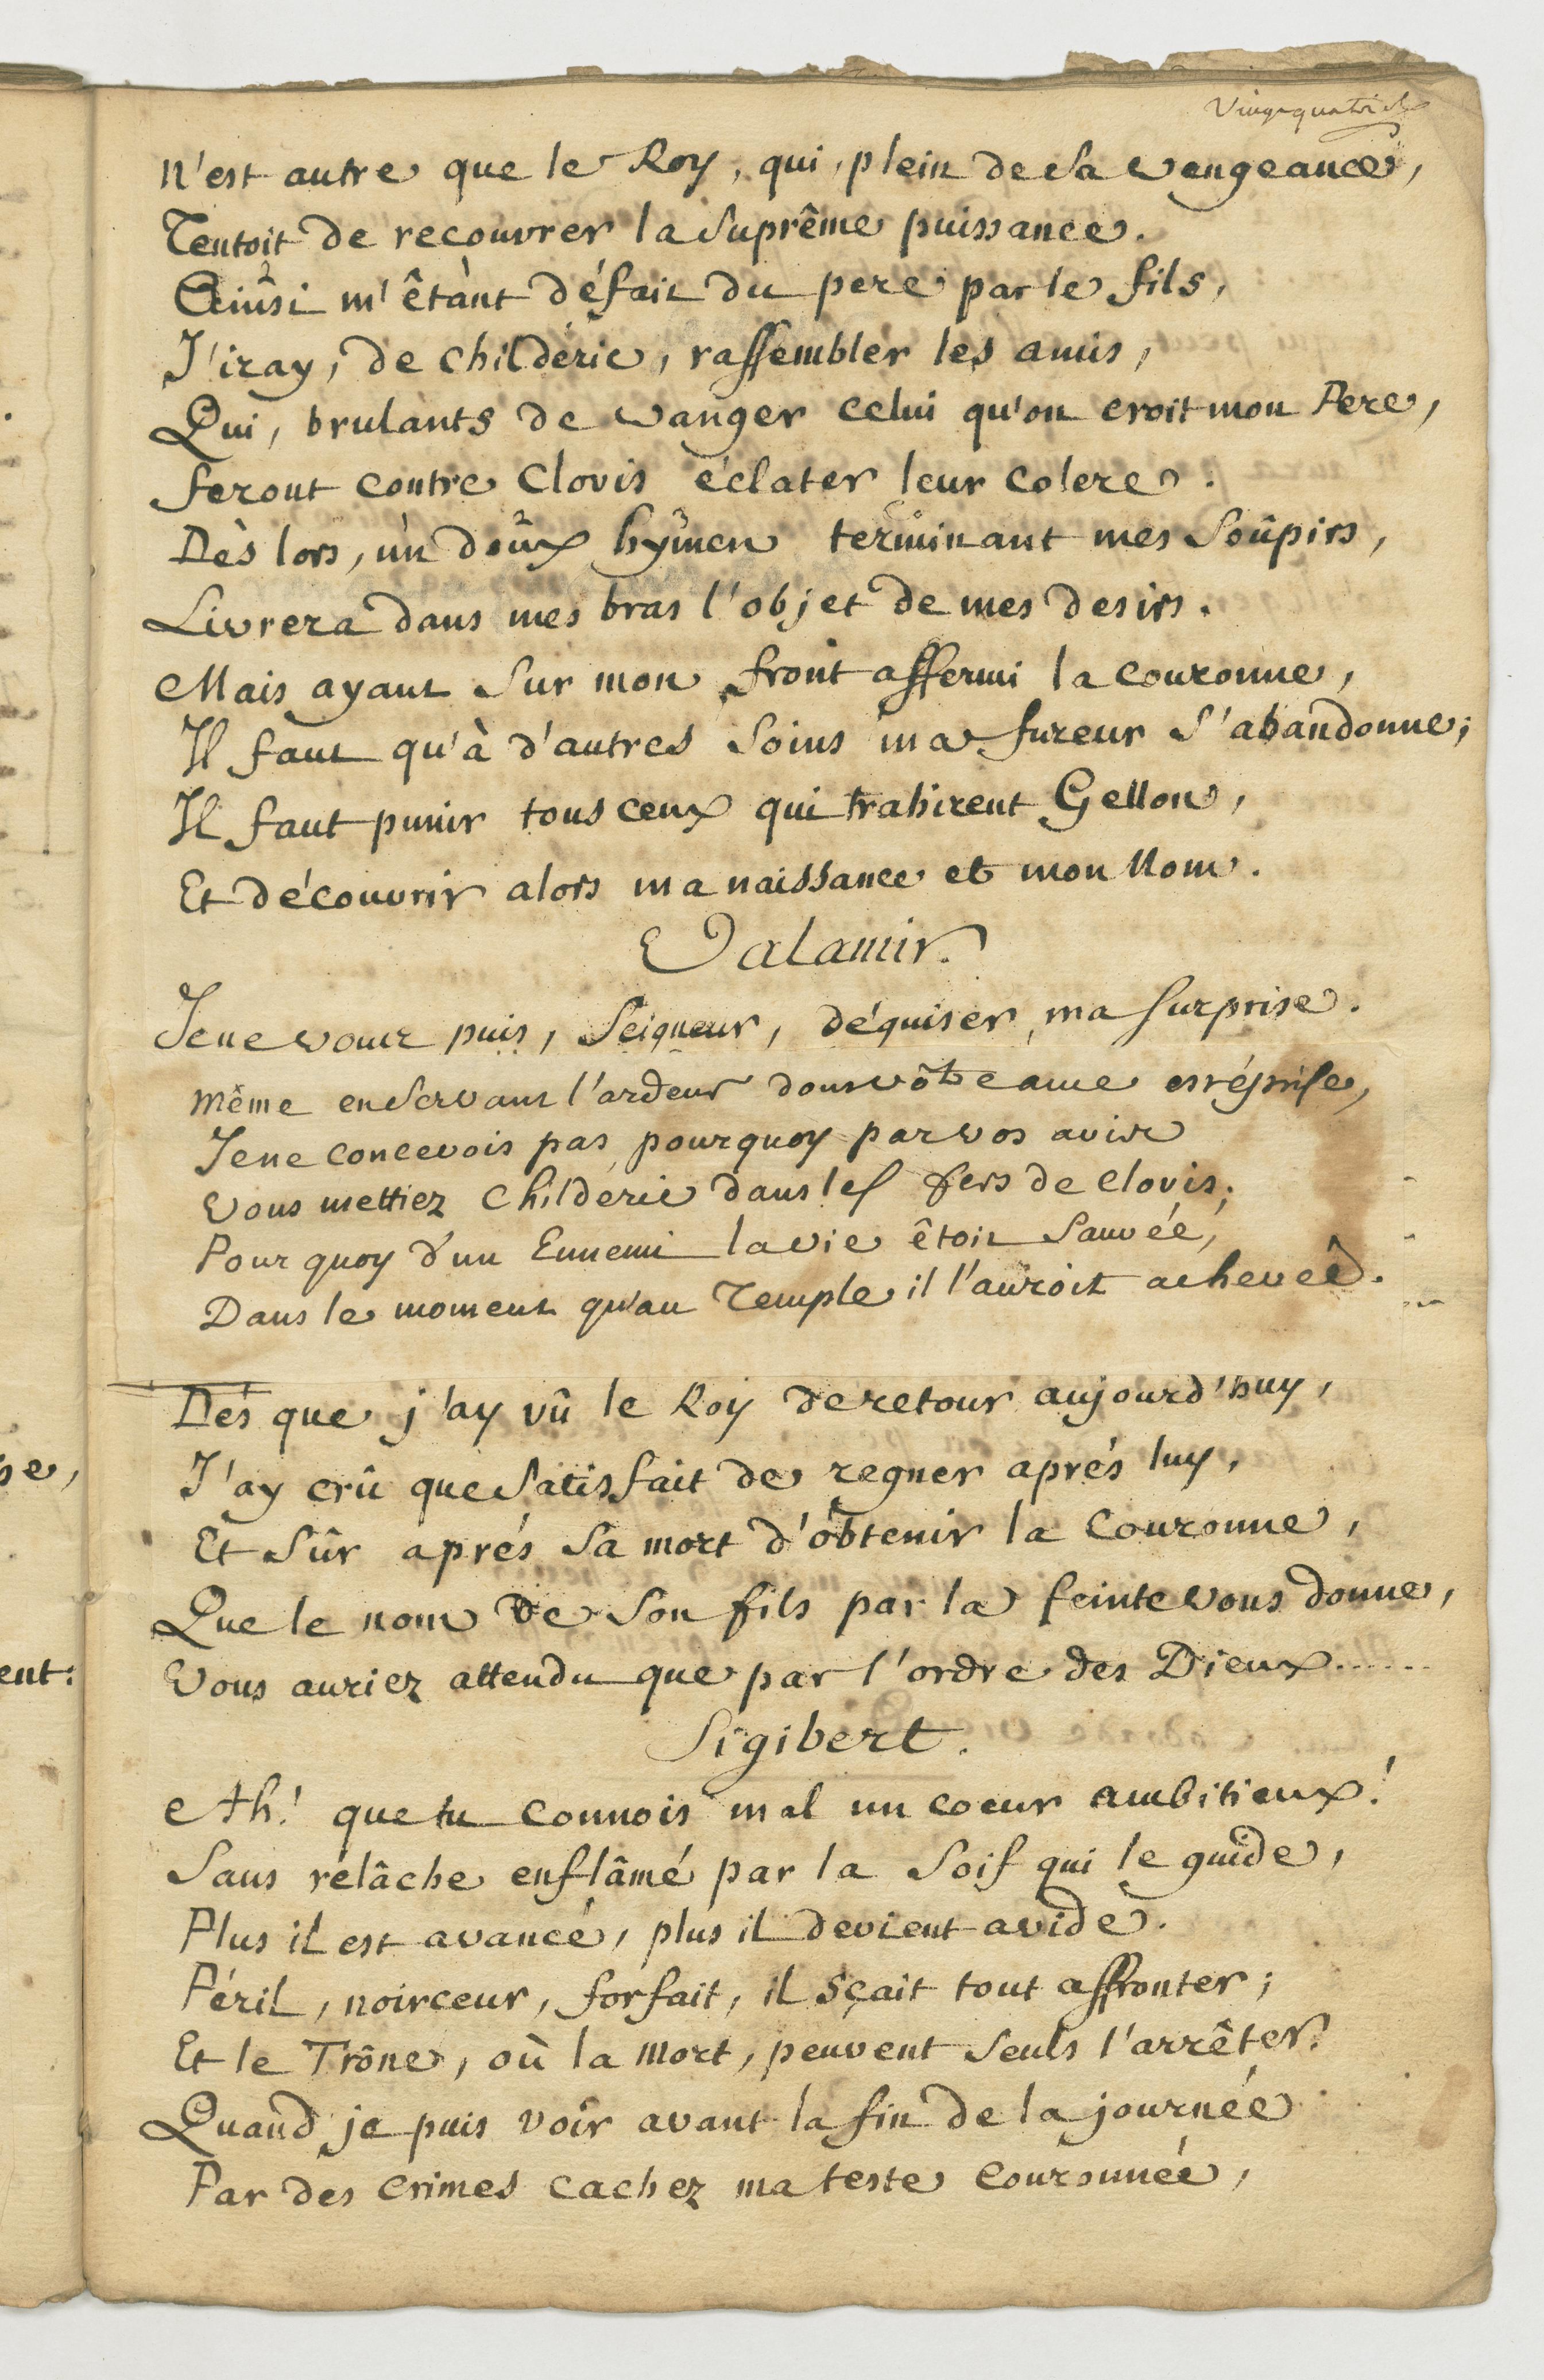 n'est autre que le Roy, qui, plein de sa vengeance,
Tentoit de recouvrer la suprême puissance.
Ainsi m'êtànt défait du pere par le fils,
J'iray, de Childéric, rassembler les amis,
Qui, brulants de vanger celui qu'on croit mon Pere,
feront contre Clovis éclater leur colere.
Dès lors, un doux hymen terminant mes soûpirs,
Livrera dans mes bras l'objet de mes desirs.
Mais ayant sur mon front affermi la couronne,
Il faut qu'à d'autres soins ma fureur s'abandonne;
Il faut punir tous ceux qui trahirent Gellon,
Et découvrir alors ma naissance et mon Nom.
Valamir.
Je ne vous puis, Seigneur, déguiser ma surprise.
même en servant l'ardeur dont vôtre ame est éprise,
Je ne concevois pas pourquoy par vos avis
vous mettiez Childeric dans les fers de Clovis;
Pourquoy d'un Ennemi la vie êtoit sauvée,
Dans le moment qu'au Temple il l'auroit achevée.
Dés que j'ay vû le Roy de retour aujourd'huy,
J'ay crû que satisfait de regner aprés luy,
Et sûr aprés sa mort d'obtenir la Couronne,
Que le nom de son fils par la feinte vous donne,
Vous auriez attendu que par l'ordre des Dieux......
Sigibert.
Ah! que tu connois mal un coeur ambitieux!
Sans relâche enflâmé par la soif qui le guide,
Plus il est avancé, plus il devient avide.
Péril, noirceur, forfait, il sçait tout affronter;
Et le Trône, où la Mort, peuvent seuls l'arrêter.
Quand je puis voir avant la fin de la journée
Par des crimes cachez ma teste couronnée,